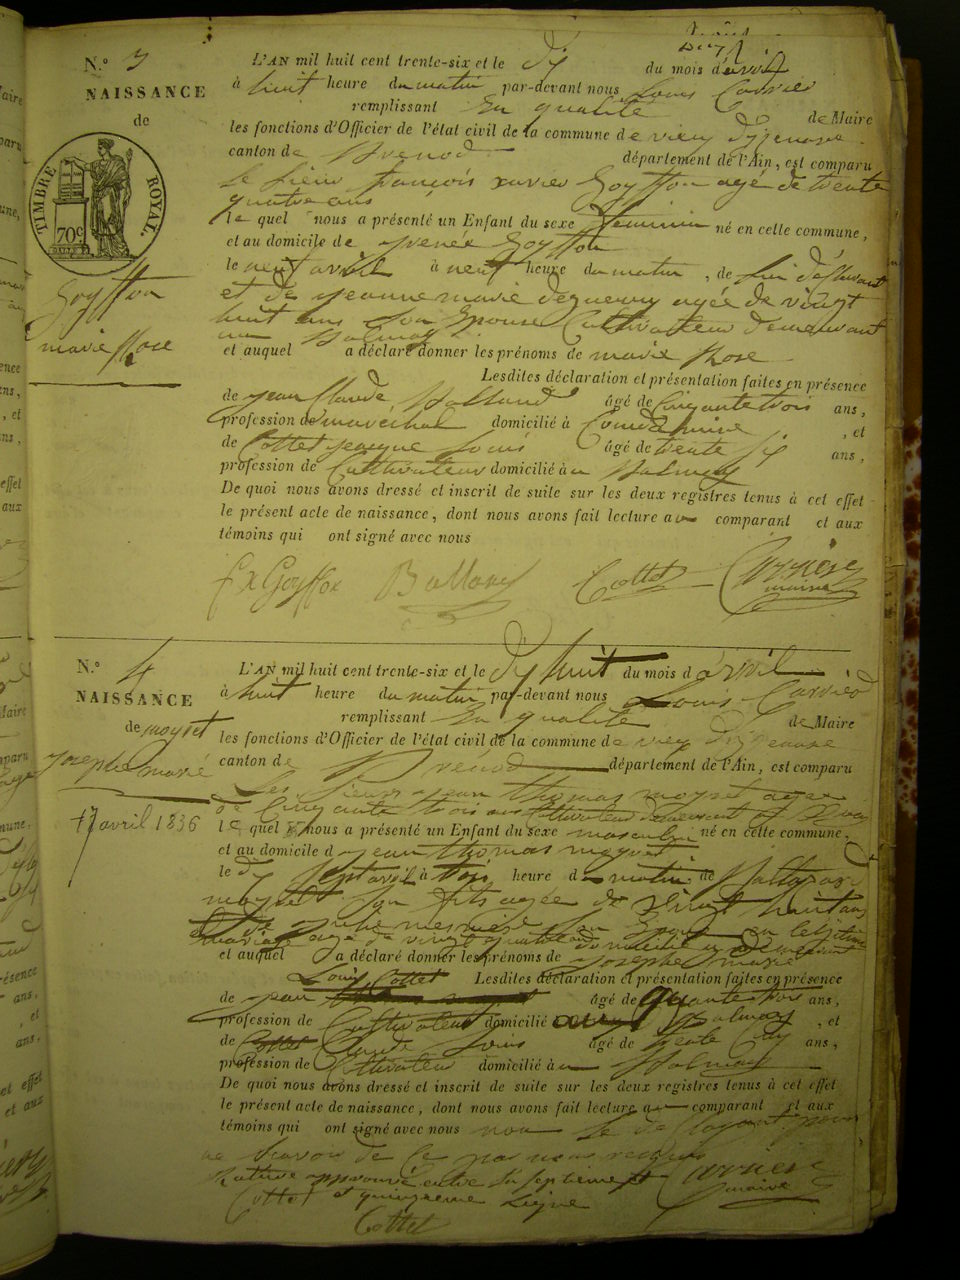 N.° 3
NAISSANCE
de
TIMBRE ROYAL.
70c
Goyffon
marie Rose
L'AN mil huit cent trente-six et le dix du mois d'avril
à huit heure du matin par-devant nous Louis Carrier
remplissant en qualité de Maire
les fonctions d'Officier de l'état civil de la commune de vieu d'izenave
canton de Brenod département de l'Ain, est comparu
le sieur françois xavier Goyffon agé de trente
quatre ans
le quel nous a présenté un Enfant du sexe feminin né en cette commune,
et au domicile de Goyffon
le neuf avril à neuf heure du matin, de lui déclarant
et de jeanne marie agée de vingt
huit ans son Epouse Cultivateur demeurant
au Balmay
et auquel a déclaré donner les prénoms de marie Rose
Lesdites déclaration et présentation faites en présence
de jean Claude Balland âgé de Cinquante trois ans,
profession de marechal domicilié à Condamine, et
de Cottet Louis âgé de trente six ans,
profession de Cultivateur domicilié au Balmay
De quoi nous avons dressé et inscrit de suite sur les deux registres tenus à cet effet
le présent acte de naissance, dont nous avons fait lecture au comparant et aux
témoins qui ont signé avec nous
fx Goyffon Balland Cottet Carrier
maire
N.° 4
NAISSANCE
de moyret
josephe marie
17 avril 1836
L'AN mil huit cent trente-six et le dix huit du mois d'avril
à huit heure du matin par-devant nous Louis Carrier
remplissant en qualité de Maire
les fonctions d'Officier de l'état civil de la commune de vieu d'izenave
canton de Brenod département de l'Ain, est comparu
Les sieur jean thomas moyret agée
de Cinquante trois ans Cultivateur demeurant
le quel nous a présenté un Enfant du sexe masculin né en cette commune,
et au domicile d jean thomas moyret
le dix sept avril à trois heure du matin de Baltazar
moyret son fils agée de vingt huit ans
et de son Epouse en lejitime
mariage agé de vingt quatre ans
et auquel a déclaré donner les prénoms de josephe marie
Louis Cottet Lesdites déclaration et présentation faites en présence
de jean âgé de quarante trois ans,
profession de Cultivateur domicilié au Balmay, et
de Cottet Claude Louis âgé de trente cinq ans,
profession de Cultivateur domicilié au Balmay
De quoi nous avons dressé et inscrit de suite sur les deux registres tenus à cet effet
le présent acte de naissance, dont nous avons fait lecture au comparant et aux
témoins qui ont signé avec nous non le déclarant pour
ne savoir de ce par nous requis
Rature approuvé entre la septieme et Carrier
Cottet et quinzieme Ligne maire
Cottet